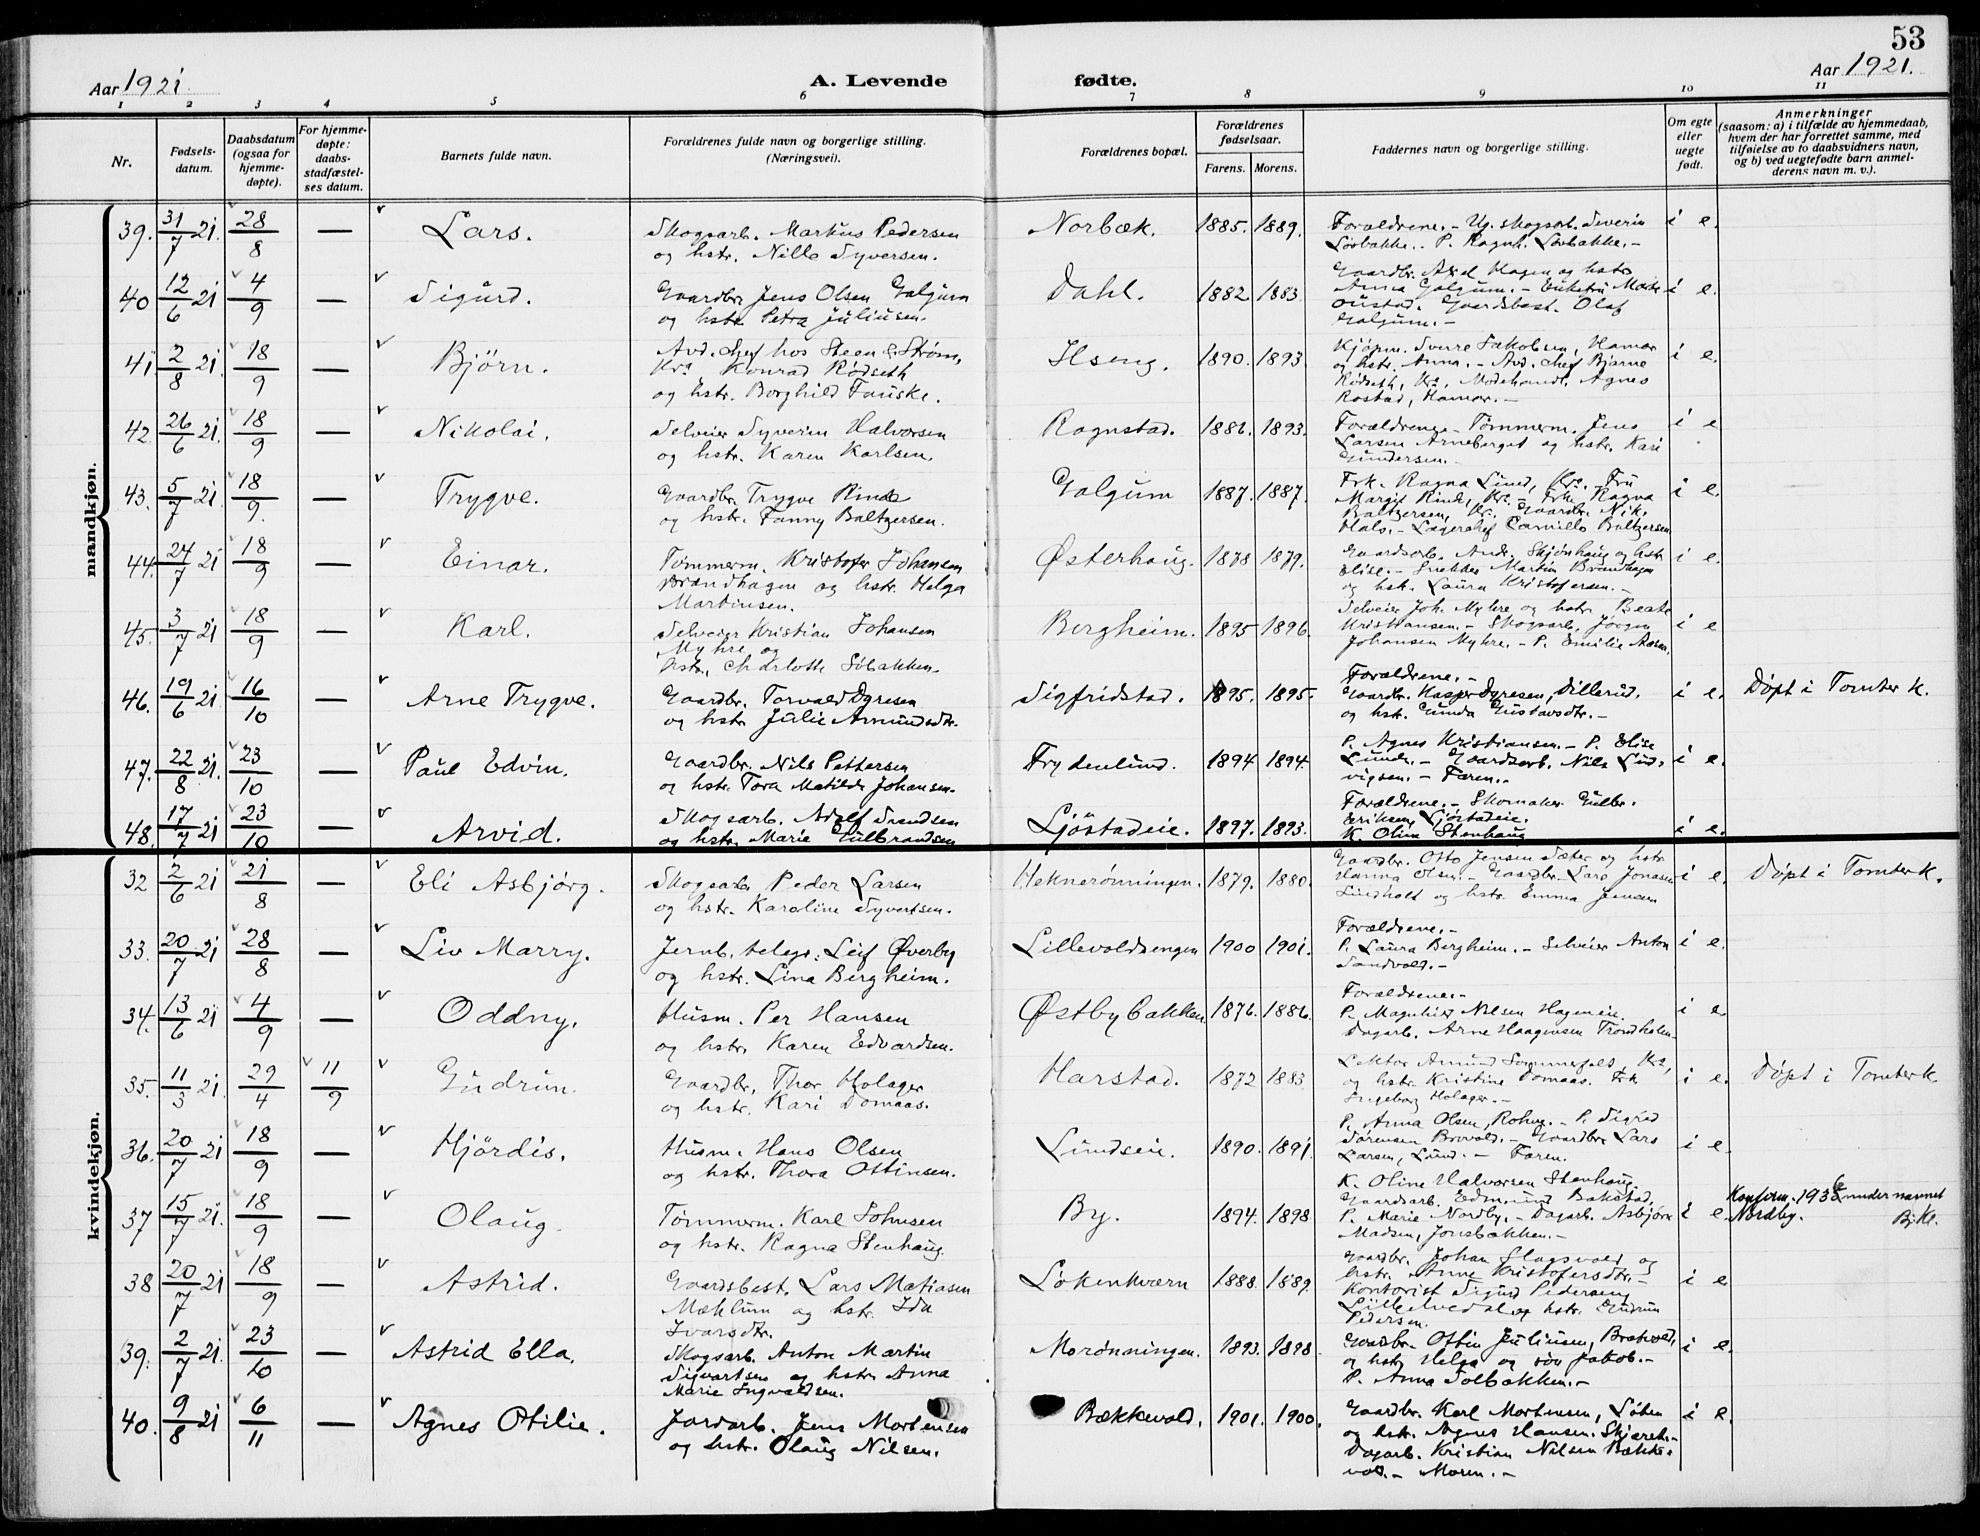 53
Aar 1921. A. Levende fødte. Aar 1921.
1 2 3 4 5 6 7 8 9 10 11
Nr. Fødsels-datum. Daabsdatum (ogsaa for hjemme-døpte). For hjemme-døpte: daabs-stadfæstel-ses datum. Barnets fulde navn. Forældrenes fulde navn og borgerlige stilling. (Næringsvei). Forældrenes bopæl. Forældrenes fødselsaar. Farens. Morens. Faddernes navn og borgerlige stilling. Om egte eller uegte født. Anmerkninger (saasom: a) i tilfælde av hjemmedaab, hvem der har forrettet samme, med tilføielse av to daabsvidners navn, og b) ved uegtefødte barn anmel-derens navn m. v.).
mandkjøn.
39. 31/7 21. 28/8 — Lars. Skogsarb. Markus Pedersen og hstr. Nille Syversen. Norbæk. 1885. 1889. Forældrene. - Ug. skogsarb. Severin Løvbakke. - P. Ragnh. Løvbakke. - i e.
40 12/6 21 4/9 — Sigurd. Gaardbr. Jens Olsen Galgum og hstr. Petra Juliusen. Dahl. 1882. 1883. Gaardbr. Axel Hagen og hstr. Anna Galgum. - Gaardsbest. Olaf Galgum. - i e.
41 2/8 21. 18/9 — Bjørn. Avd. chef hos Steen & Strøm, Kra. Konrad Rødseth og hstr. Borghild Fauske. Ilseng. 1890. 1893. Kjøpm. Sverre Jakobsen, Hamar og hstr. Anna. - Avd. chef Bjarne Rødseth, Kra. Modehandl. Agnes Rostad, Hamar. - i e.
42. 26/6 21. 18/9 — Nikolai. Selveier Syverin Halvorsen og hstr. Karen Karlsen. Rognstad. 1886. 1893. Forældrene - Tømmerm. Jens Larsen Arneberget og hstr. Kari Gundersen. - i e
43. 5/7 21 18/9. — Trygve. Gaardbr. Trygve Rinde og hstr. Fanny Baltzersen. Galgum 1887. 1887. Frk. Ragna Lund, Kra. - Fru Margit Rinde, Kra. - Frk. Ragna Baltzersen, Kr. Gaardbr. Nik. Hals. - Lagerchef Camillo Baltzersen i e.
44. 24/7 21 18/9 — Einar. Tømmerm. Kristofer Johansen Brændhagen og hstr. Helga Martinsen. Østerhaug. 1878 1879. Gaardsarb. Andr. Skjønhaug og hstr. Elise. - Snekker Martin Brændhagen og hstr. Laura Kristofersen. - i e.
45. 3/7 21 18/9 — Karl. Selveier Kristian Johansen Myhre og hstr. Charlotte Solbakken. Bergheim. 1895 1896. Selveier Joh. Myhre og hstr. Beate Kristiansen. - Skogsarb. Jørgen Johansen Myhre. - P. Emilie Aasen. i e
46. 19/6 21 16/10 — Arne Trygve. Gaardbr. Torvald Dyresen og hstr. Julie Amundsdtr. Sigfridstad. 1895. 1895. Forældrene. - Gaardbr. Kasper Dyresen, Dillerud. og hstr. Gunda Gustavsdtr. - i e. Døpt i Tomter K.
47. 22/8 21. 23/10 — Paul Edvin. Gaardbr. Nils Pettersen og hstr. Tora Matilde Johansen. Frydenlund. 1894 1894. P. Agnes Kristiansen. - P. Elise Lunde. - Gaardsarb. Nils Ludvigsen. - Faren. - i e.
48. 17/7 21 23/10 — Arvid. Skogsarb. Adolf Svendsen og hstr. Marie Gulbrandsen Ljøstadeie. 1897. 1893. Forældrene. - Skomaker Gulbr. Eriksen, Ljøstadeie. K. Oline Stenhaug i e.
kvindekjøn.
32 2/6 21 21/8 — Eli Asbjørg. Skogsarb. Peder Larsen og hstr. Karoline Syvertsen. Heknerønningen. 1879. 1880. Gaardbr. Otto Jensen Sæter og hstr. Hanna Olsen. - Gaardbr. Lars Jonasen Lindholt og hstr. Emma Jensen i e. Døpt i Tomter K.
33. 20/7 21 28/8 — Liv Marry. Jernb. telegr. Leif Øverby og hstr. Lina Bergheim. Lillevoldsengen 1900 1901. Forældrene. - P. Laura Bergheim. - Selveier Anton Sandvold. - i e.
34. 13/6 21 4/9 — Oddny. Husm. Per Hansen og hstr. Karen Edvardsen. Østbybakken 1876. 1886. Forældrene. - P. Magnhild Nilsen Hageneie. Dagarb. Arne Haagensen Trondholen i e
35. 11/3 21. 29/4 11/9 Gudrun. Gaardbr. Thor Holager og hstr. Kari Domaas. Harstad. 1872 1883 Lektor Amund Sommerfelt, Kra, og hstr. Kristine Domaas. Frk Ingeborg Holager. - i e. Døpt i Tomter K.
36. 20/7 21 18/9 — Hjördis. Husm. Hans Olsen og hstr. Thora Ottinsen. Lundseie. 1890. 1891. P. Anna Olsen, - P. Sigrid Sørensen - Gaardbr. Lars Larsen, Lund. - Faren. i e.
37 15/7 21. 18/9 — Olaug. Tømmerm. Karl Johnsen og hstr. Ragna Stenhaug. By. 1894. 1898. K. Oline Halvorsen Stenhaug. Gaardsarb. Edmund Bakstad, P. Marie Nordby. - Dagarb. Asbjørn Madsen, Jonsbakken. - i e. Konfirm. 1936 under navnet Nordby. Bj.Kl.
38 20/7 21 18/9 — Astrid. Gaardsbest. Lars Matiasen Mæhlum og hstr. Ida Ivarsdtr. Løkenkværn 1888. 1889. Gaardbr. Johan Slagsvold og hstr. Anne Kristofersdtr. - Kontorist Sigurd Pedersen, og hstr. Gudrun Pedersen. i e
39. 2/7 21. 23/10 — Astrid Ella. Skogsarb. Anton Martin Sigvartsen og hstr. Anna Marie Ingvaldsen. Morønningen. 1893. 1898. Gaardbr. Ottin Juliusen, Bratvold, og hstr. Helga og søn Jakob. - P. Anna Solbakken. - i e.
40. 9/8 21 6/11 — Agnes Otilie. Jordarb. Jens Mortensen og hstr. Olaug Nilsen. Bækkevold. 1901. 1900. Gaardbr. Karl Mortensen, Løten og hstr. Agnes Hansen. Dagarb. Kristian Nilsen Bækkevold. - Moren. - i e.